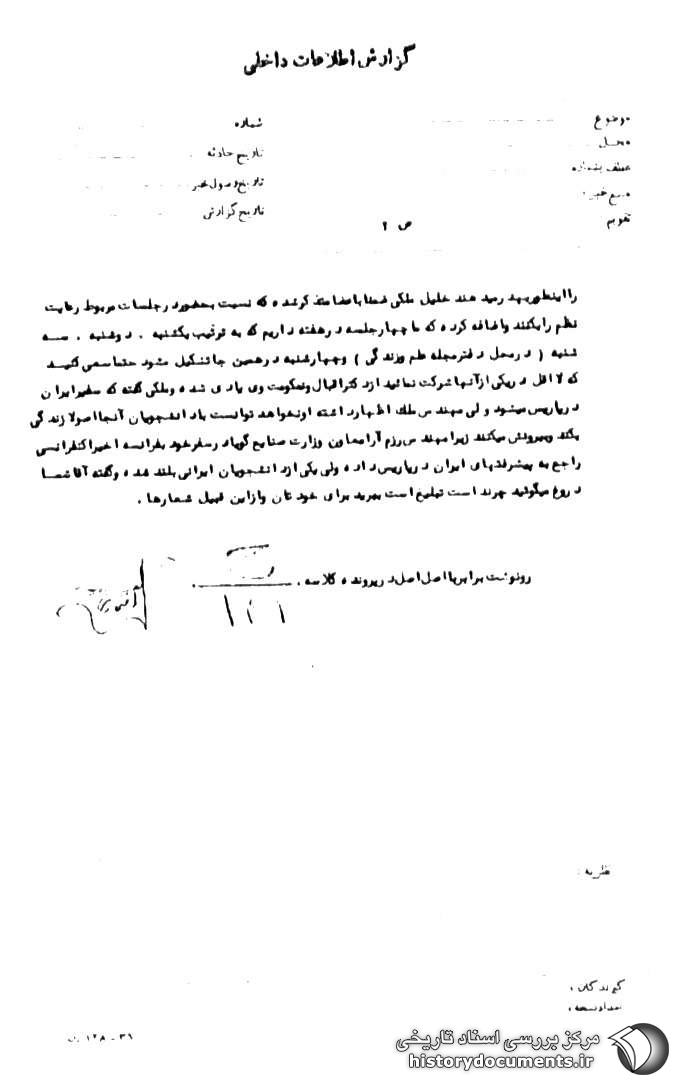 گزارش اطلاعات داخلی
موضوع
شماره
محل
تاریخ حادثه
عطف بشماره
تاریخ وصول خبر
منبع خبر:
تاریخ گزارش
تقویم
ص ۲
را اینطور میدهند خلیل ملکی ضمنا باعضا متذکر شده که نسبت بحضور در جلسات مربوط رعایت
نظم را بکنند واضافه کرده که ما چهار جلسه در هفته داریم که به ترتیب یکشنبه ، دوشنبه ، سه
شنبه ( در محل دفتر مجله علم وزندگی ) وچهارشنبه در همین جا تشکیل میشود حتما سعی کنید
که لا اقل در یکی از آنها شرکت نمائید از دکتر اقبال وحکومت وی یادی شده وملکی گفته که سفیر ایران
در پاریس میشود ولی مهندس ملک اظهار داشته او نخواهد توانست با دانشجویان آنجا اصولا زندگی
بکند وبیرونش میکنند زیرا مهندس رزم آرا معاون وزارت صنایع گویا در سفر خود بفرانسه اخیرا کنفرانسی
راجع به پیشرفتهای ایران در پاریس داده ولی یکی از دانشجویان ایرانی بلند شده وگفته آقا شما
دروغ میگوئید چرند است تبلیغ است ببرید برای خودتان واز این قبیل شعارها .
رونوشت برابر با اصل اصل در پرونده کلاسه
نظریه :
گیرندگان :
تعداد نسخه :
۳۱ - ۱۲۸
مرکز بررسی اسناد تاریخی
historydocuments.ir